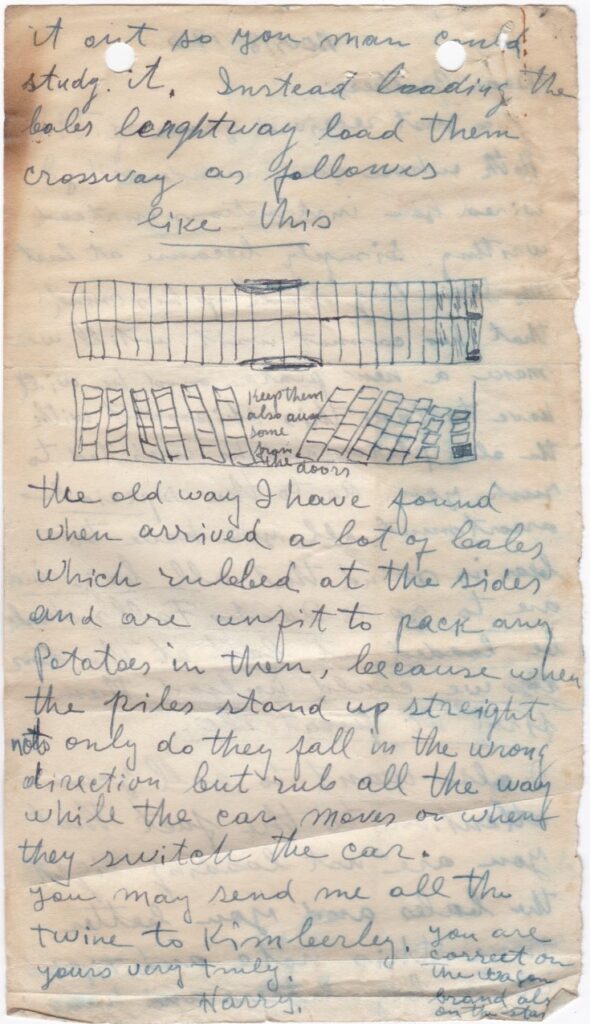 it out so you man could
study it. Instead loading the
bales lenghtway load them
crossway as followes
like this
Keep them
also away
some
from
the doors
the old way I have found
when arrived a lot of bales
which rubbed at the sides
and are unfit to pack any
Potatoes in then, because when
the piles stand up streight
not only do they fall in the wrong
direction but rub all the way
while the car moves or when
they switch the car.
you may send me all the
twine to Kimberley.
yours very truly.
Harry.
you are
correct on
the wagon
brand also
on the star